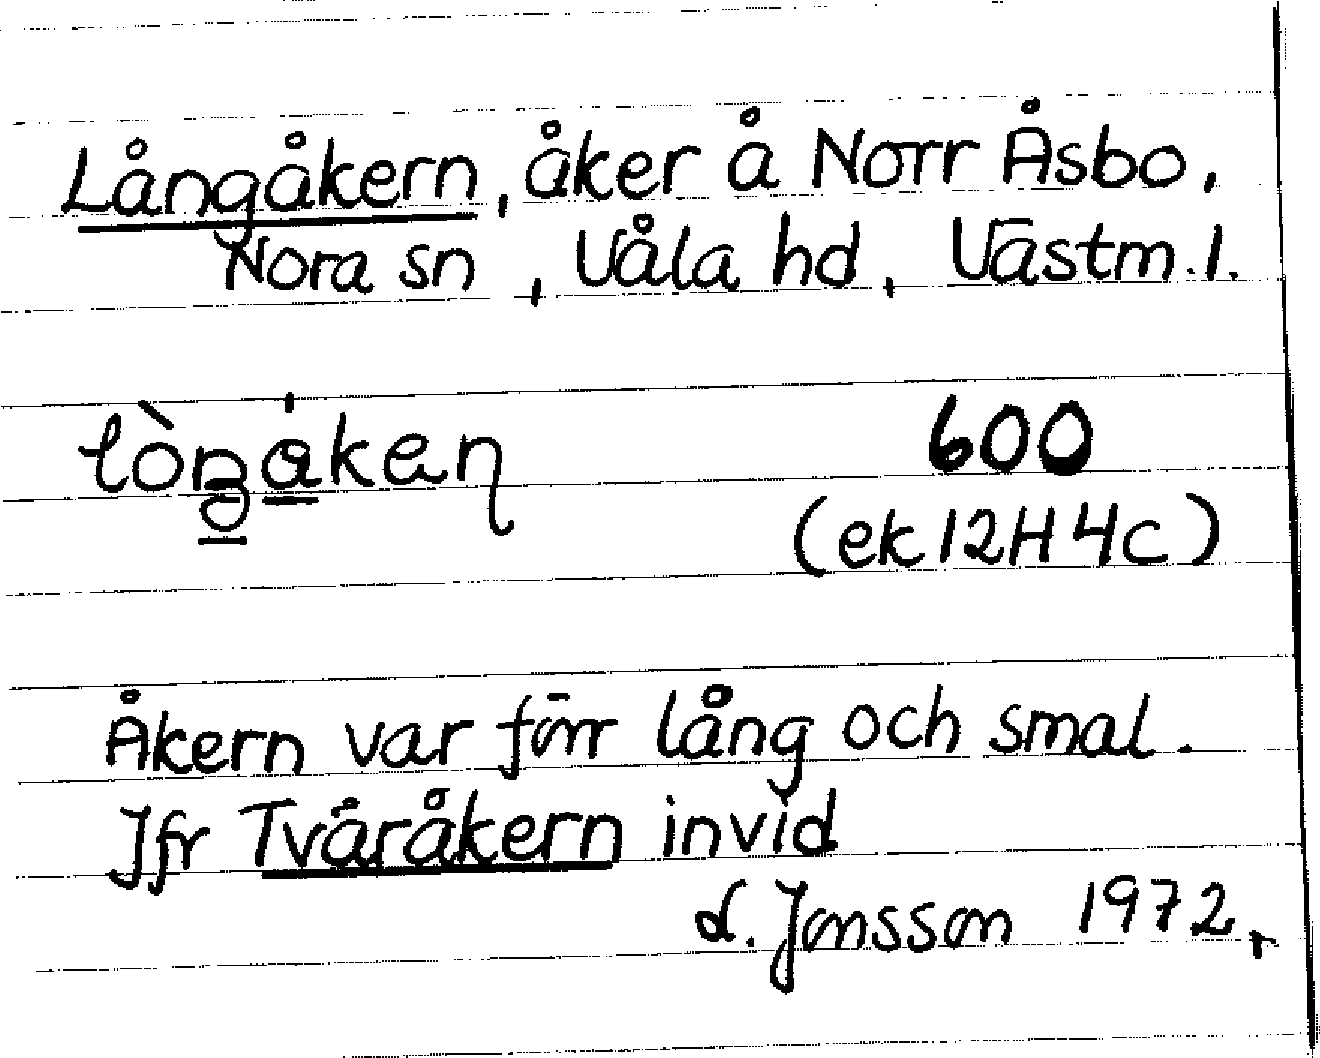 Långåkern, åker å Norr Åsbo,
Nora sn, Våla hd, Västm. l.
600
(ek 12H 4c)
Åkern var förr lång och smal.
Jfr Tvåråkern invid
Jonsson 1972.